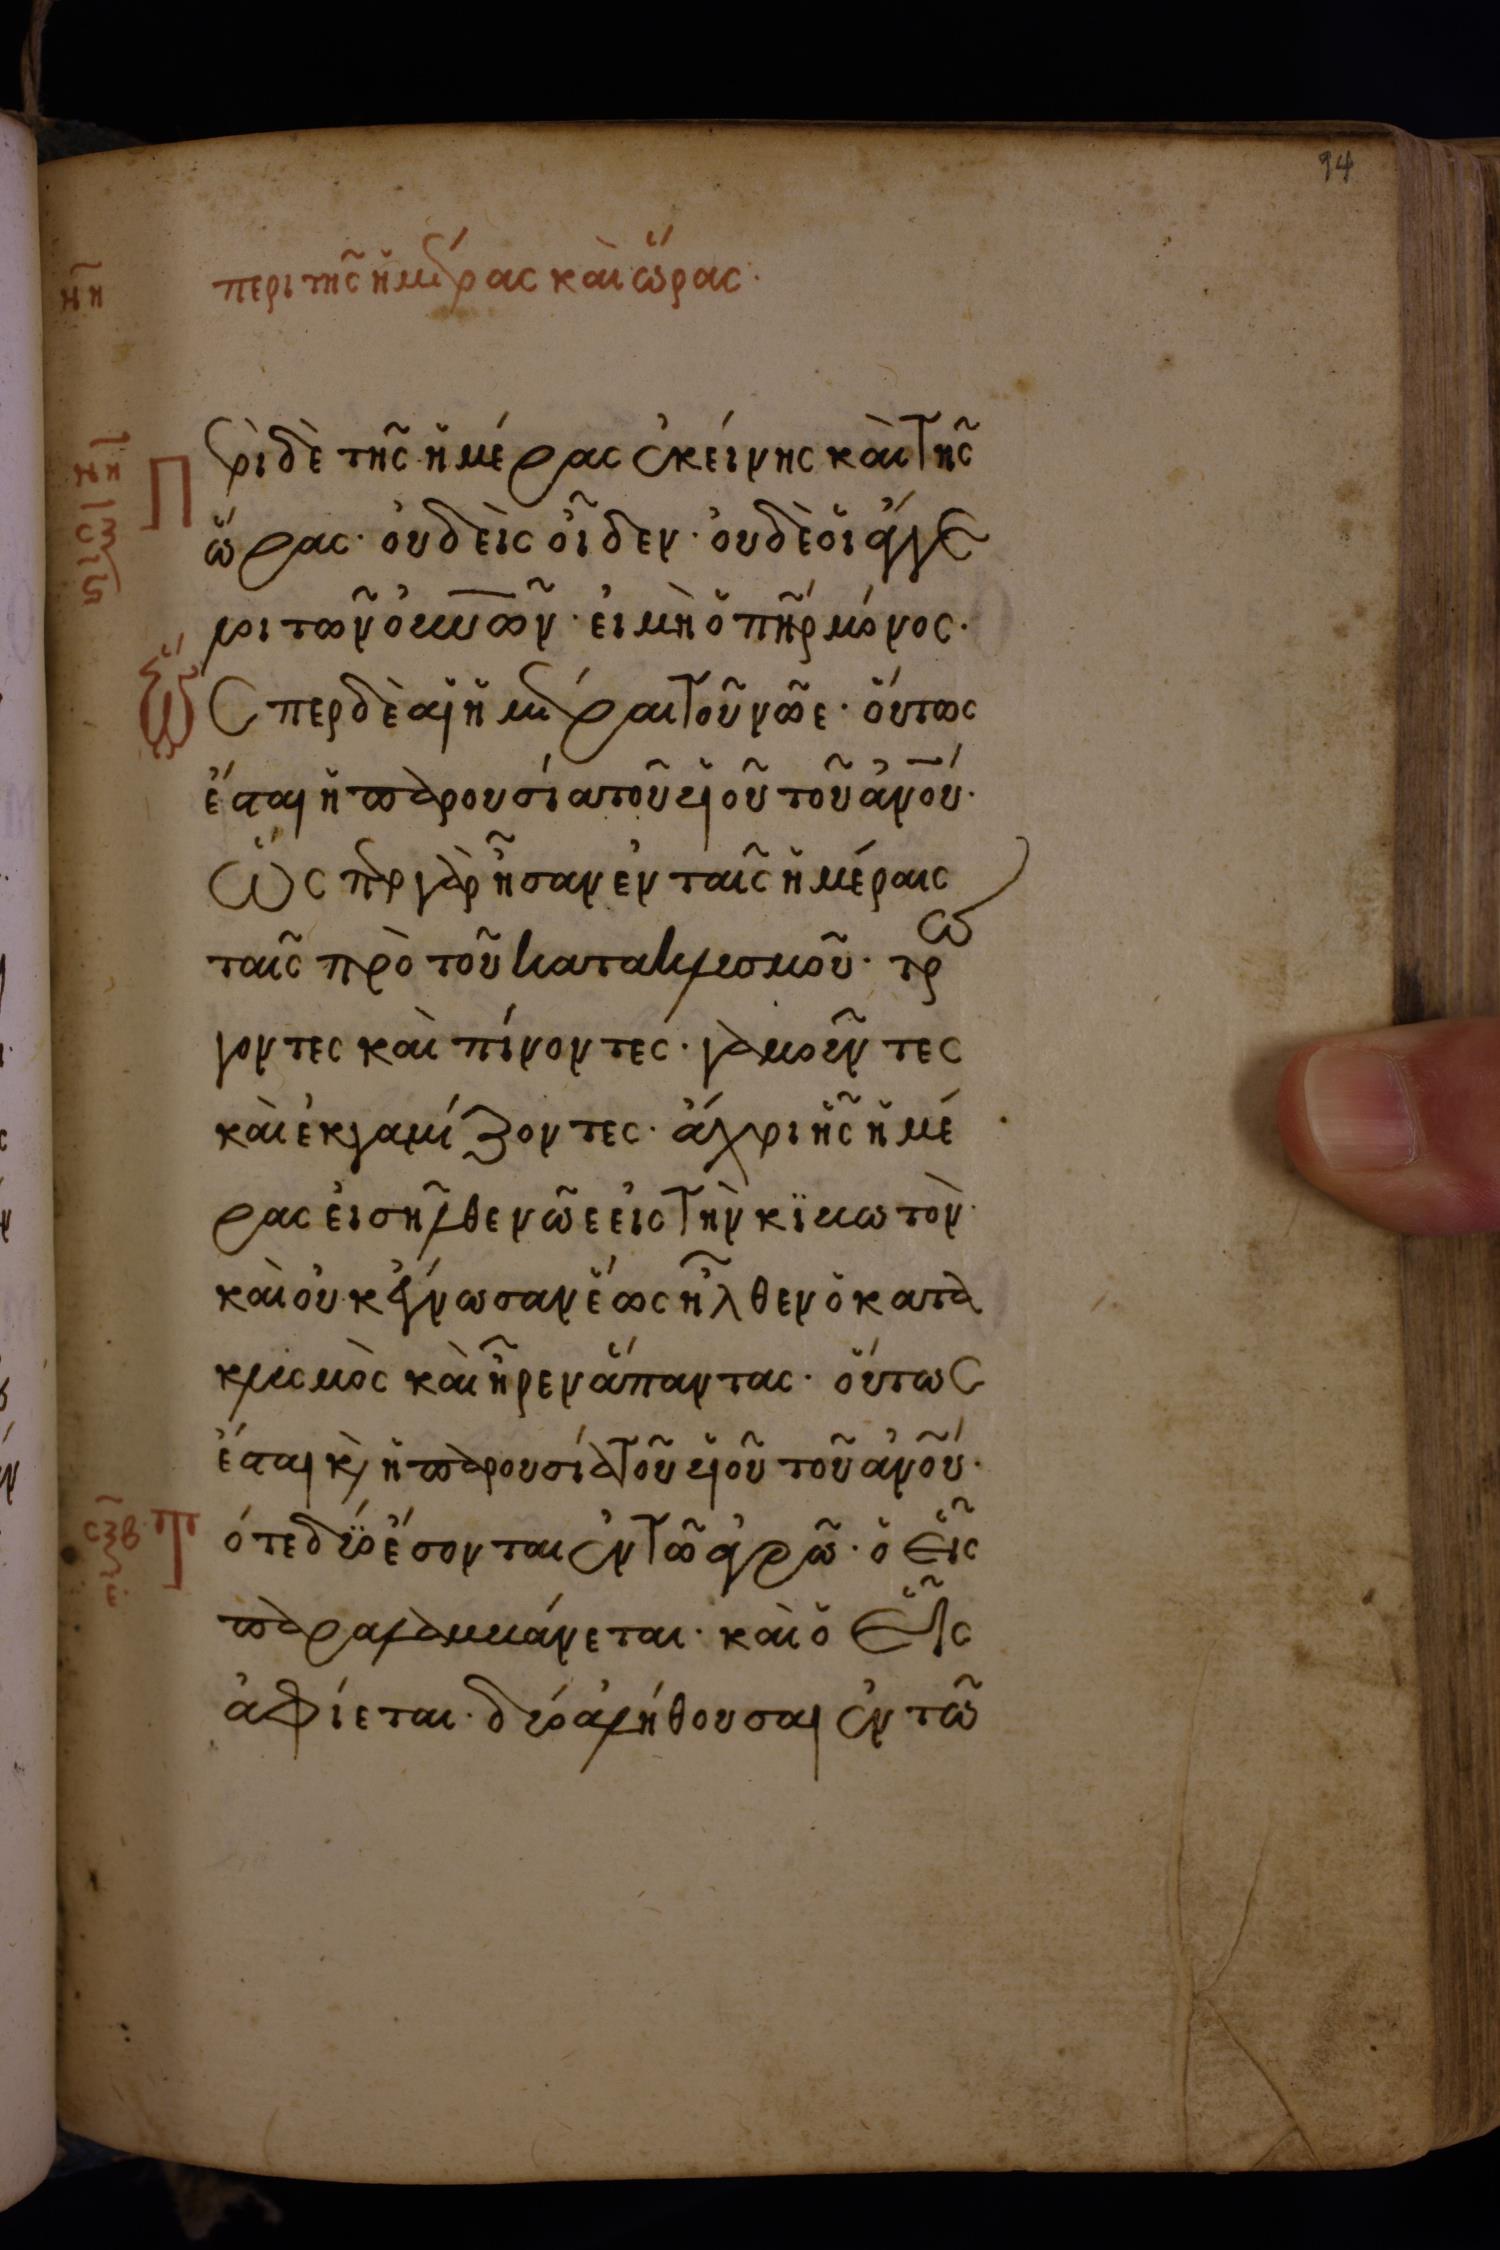 94
νη περι τῆς ἡμέρας καὶ ὥρας·
Περὶ δὲ τῆς ἡμέρας ἐκείνης καὶ τῆς
ὥρας· οὐδεὶς οἶδεν· οὐδὲ οἱ ἄγγε
λοι τῶν οὐν̅ῶν· εἰ μὴ ὁ π̅η̅ρ μόνος·
Ὥσπερ δὲ αἱ ἡμέραι τοῦ νῶε· οὕτως
ἔσται ἡ παρουσία τοῦ υἱοῦ τοῦ ἀν̅ο̅υ·
Ὥσπερ γὰρ ἦσαν ἐν ταῖς ἡμέραις
ταῖς πρὸ τοῦ κατακλυσμοῦ· τρώ
γοντες καὶ πίνοντές· γαμοῦντες
καὶ ἐκγαμίζοντες· ἄχρι ἧς ἡμέ
ρας εἰσῆλθε νῶε εἰς τὴν κϊβωτὸν·
καὶ οὐκ ἔγνωσαν ἕως ἦλθεν ὁ κατα
κλυσμὸς καὶ ἦρεν ἅπαντας· οὕτως
ἔσται κ̀ ἡ παρουσία τοῦ υἱοῦ τοῦ ἀν̅ο̅υ·
σξβ
ε
Τότε δύο ἔσονται ἐν τῶ ἀγρῶ· ὁ εἷς
παραλαμβάνεται· καὶ ὁ εἷς
ἀφίεται· δύο ἀλήθουσαι ἐν τῶ